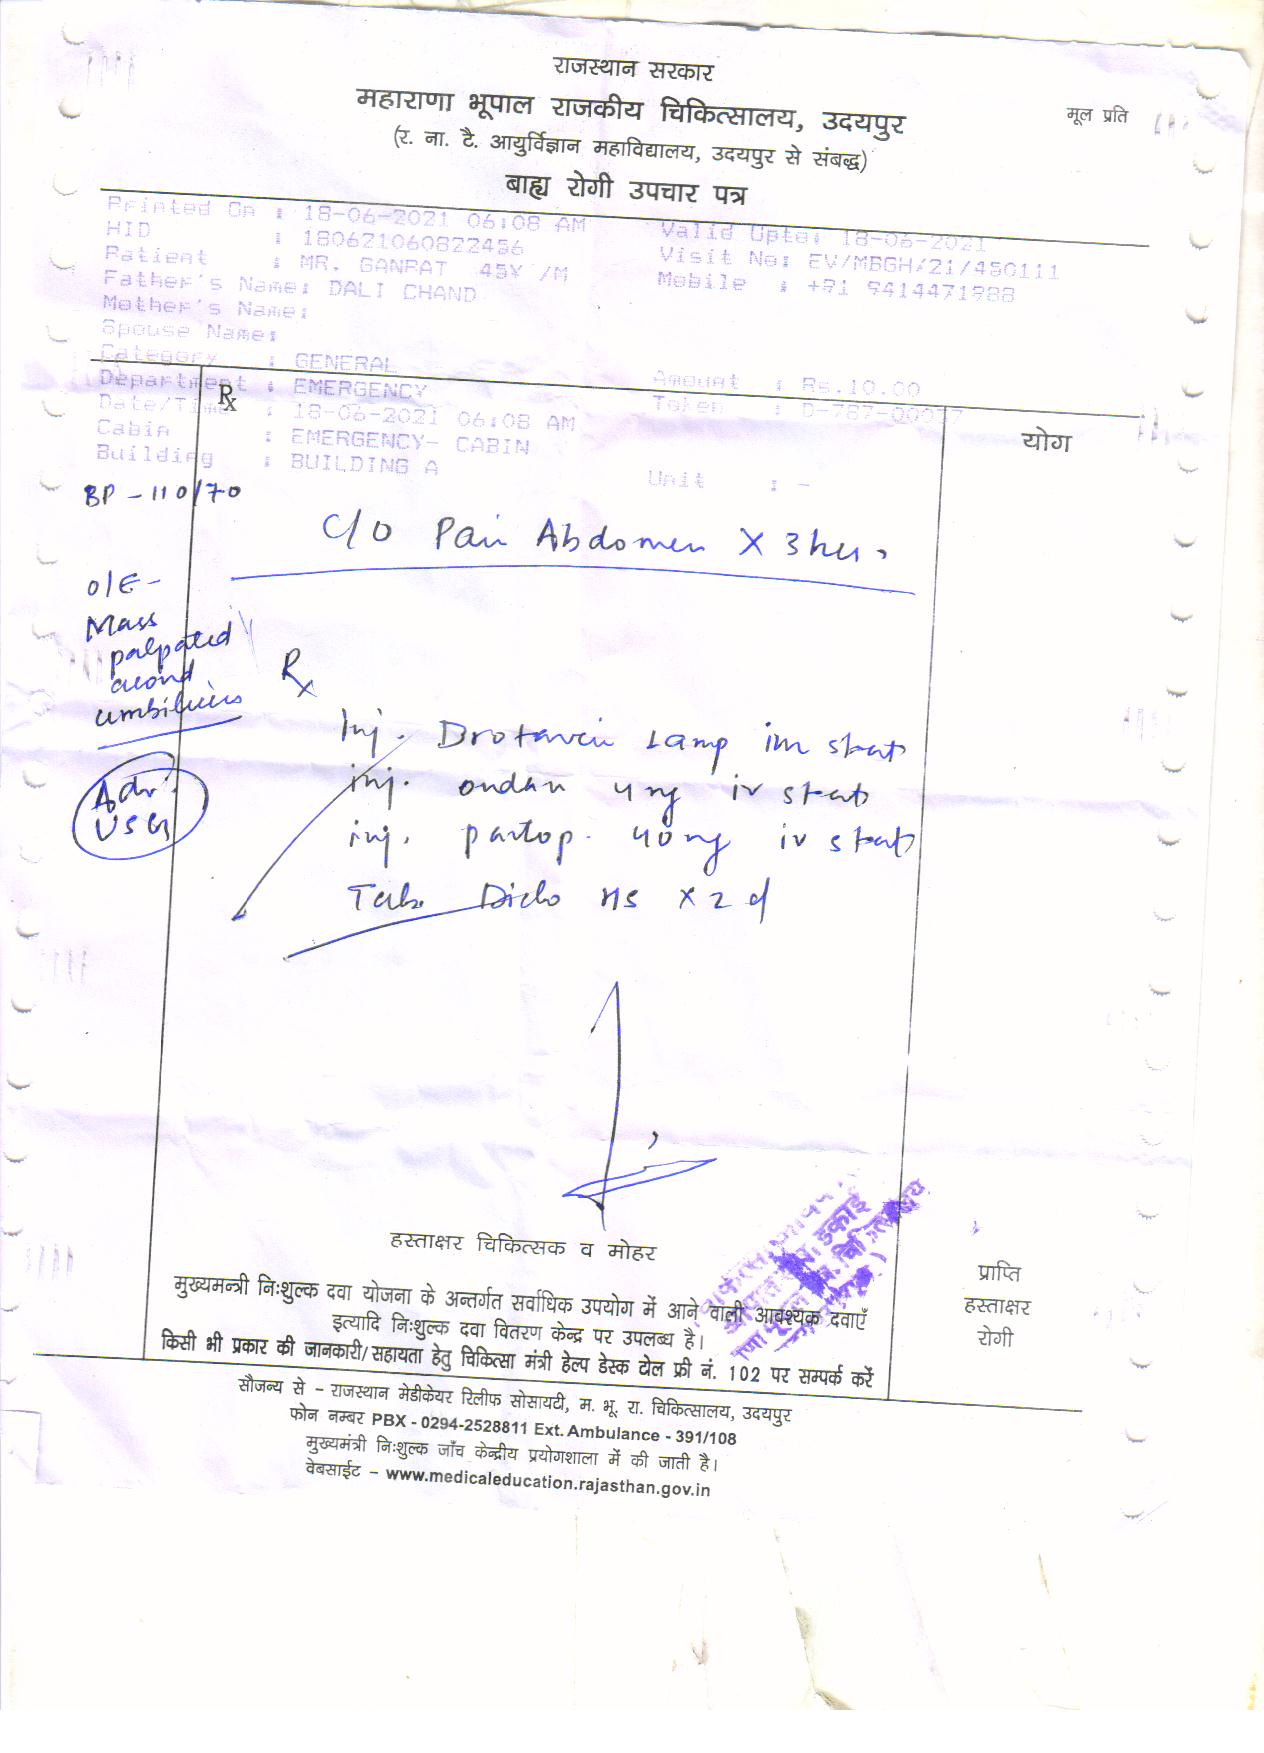 राजस्थान सरकार
महाराणा भूपाल राजकीय चिकित्सालय, उदयपुर
मूल प्रति
(र. ना. टै. आयुर्विज्ञान महाविद्यालय, उदयपुर से संबद्ध)
बाह्य रोगी उपचार पत्र
Printed On : 18-06-2021 06:08 AM Valid Upto: 18-06-2021
HID : 180621060822456 Visit No: EV/MBGH/21/450111
Patient : MR. GANPAT 45Y /M Mobile : +91 9414471988
Father's Name: DALI CHAND
Mother's Name:
Spouse Name:
Category : GENERAL Amount : Rs.10.00
Department : EMERGENCY Token : D-787-
Date/Time : 18-06-2021 06:08 AM
Cabin : EMERGENCY- CABIN
Building : BUILDING A Unit : -
Rx
योग
BP - 110/70
C/O Pain Abdomen X 3 hrs.
O/E -
Mass
palpated
around
umbilicus
Adv.
USG
Rx
Inj. Drotaverin 1amp im stat
inj. ondan 4mg iv stat
inj. pantop. 40mg iv stat
Tab. Diclo X 2 d
हस्ताक्षर चिकित्सक व मोहर
मुख्यमन्त्री निःशुल्क दवा योजना के अन्तर्गत सर्वाधिक उपयोग में आने वाली आवश्यक दवाएँ
इत्यादि निःशुल्क दवा वितरण केन्द्र पर उपलब्ध है।
किसी भी प्रकार की जानकारी/सहायता हेतु चिकित्सा मंत्री हेल्प डेस्क टोल फ्री नं. 102 पर सम्पर्क करें
प्राप्ति
हस्ताक्षर
रोगी
सौजन्य से – राजस्थान मेडीकेयर रिलीफ सोसायटी, म. भू. रा. चिकित्सालय, उदयपुर
फोन नम्बर PBX - 0294-2528811 Ext. Ambulance - 391/108
मुख्यमंत्री निःशुल्क जाँच केन्द्रीय प्रयोगशाला में की जाती है।
वेबसाईट – www.medicaleducation.rajasthan.gov.in